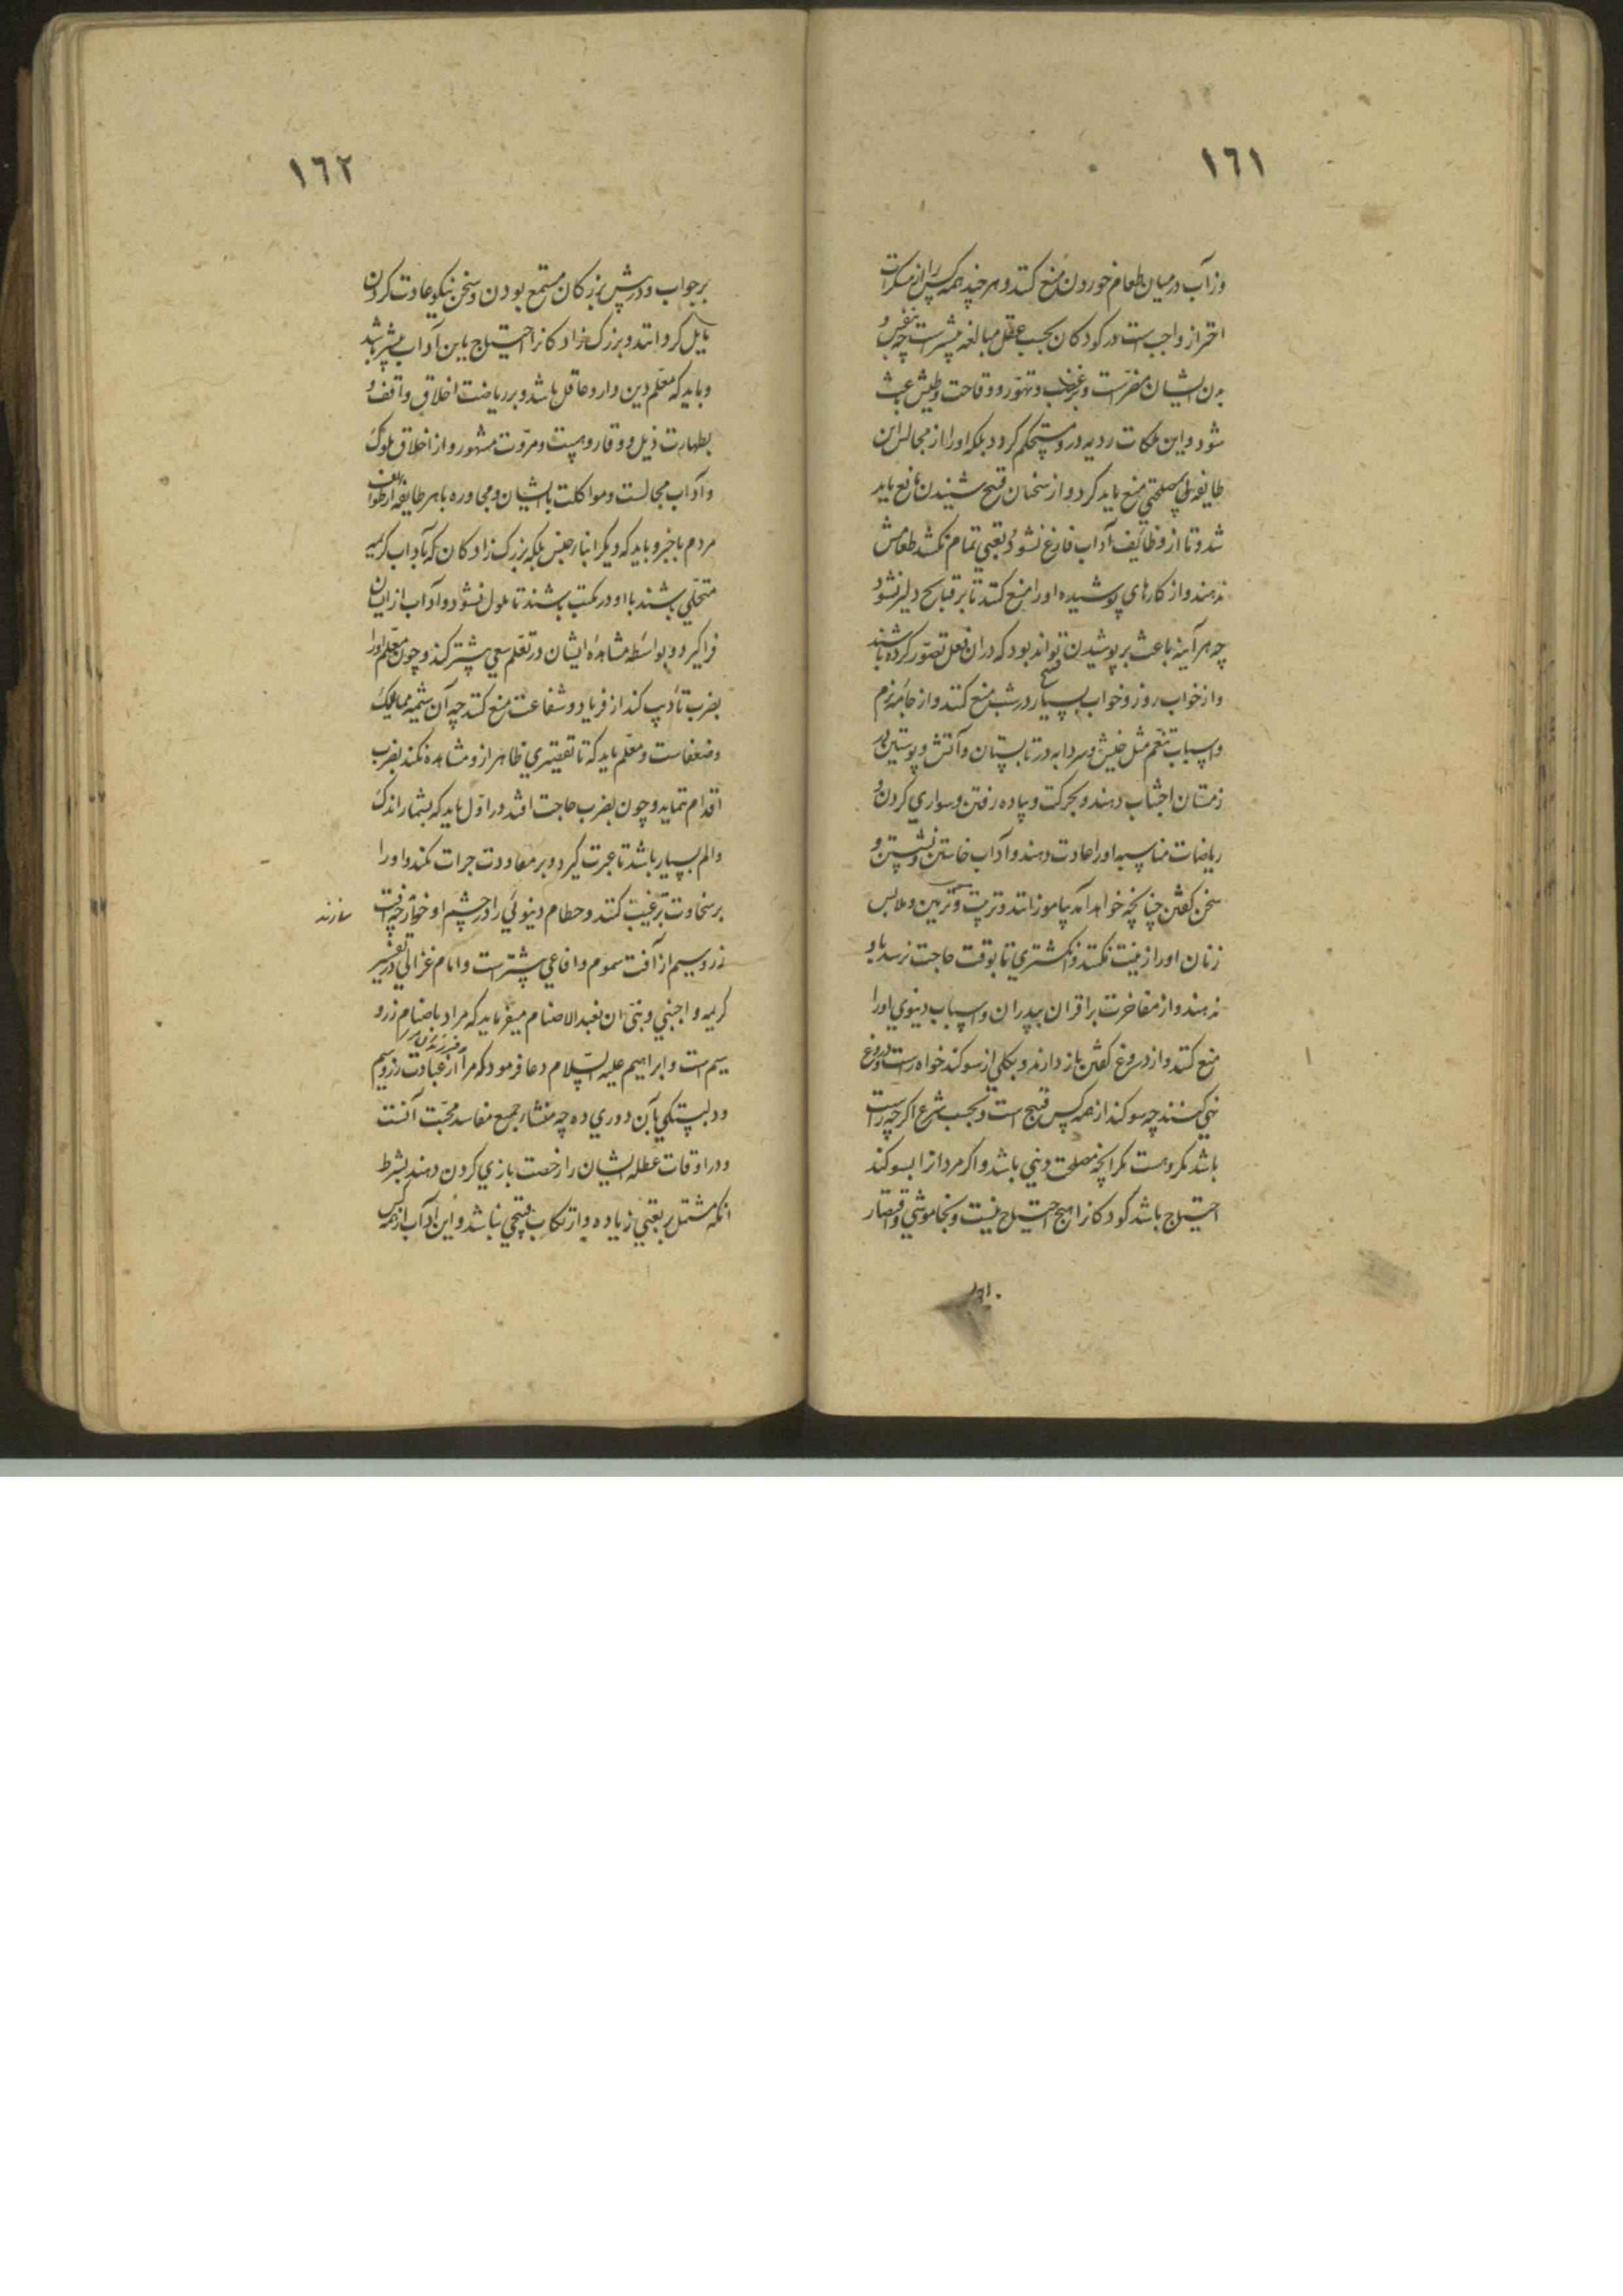 ١٦١
وز آب در میان طعام خوردن منع کنند و هر چند همه کس را از مسکرات
احتراز واجبست در کودکان بحسب عقل مبالغه بیشتر است چه بنفس و
بدن ایشان مضرّ است و بر غضب و تهوّر و وقاحت و طیش باعث
شود و این ملکات ردیه در و مستحکم گردد بلکه او را از مجالس این
طایفه بی مصلحتی منع باید کرد و از سخنان قبیح شنیدن مانع باید
شد و تا از وظایف آداب فارغ نشود و تعبی تمام نکشد طعامش
ندهند و از کارهای پوشیده او را منع کنند تا بر قبایح دلیر نشود
چه هر آینه باعث بر پوشیدن تواند بود که در ان فعل قبح تصوّر کرده باشند
و از خواب روز و خواب بسیار در شب منع کنند و از جامه نرم
و اسباب تنعّم مثل خیش و سردابه در تابستان و آتش و پوستین در
زمستان اجتناب دهند و بحرکت و پیاده رفتن و سواری کردن و
ریاضات مناسبه او را عادت دهند و آداب خاستن و نشستن و
سخن گفتن چنانچه خواهد آمد بیاموزانند و تربیت و تزیین و ملابس
زنان او را زینت نکنند و انگشتری تا بوقت حاجت نرسد باو
ندهند و از مفاخرت بر اقران بپدران و اسباب دنیوی او را
منع کنند و از دروغ گفتن باز دارند و بکلی از سوگند خواه راست و دروغ
نهی کنند چه سوگند از همه کس قبیح است و بحسب شرع اگر چه راست
باشد مکروهست مگر آنچه مصلحت دینی باشد و اگر مردان را بسوگند
احتیاج باشد کودکان را هیچ احتیاج نیست و بخاموشی و اقتصار
١٦٢
بر جواب و در پیش بزرگان مستمع بودن و سخن نیکو عادت کردن
مایل گردانند و بزرگ زادگان را احتیاج باین آداب بیشتر باشد
و باید که معلّم دین دار و عاقل باشد و بر ریاضت اخلاق واقف و
بطهارت ذیل و وقار و هیبت و مروّت مشهور و از اخلاق ملوک
و آداب مجالست و مواکلت با ایشان و محاوره با هر طایفه از طوایف
مردم با خبر و باید که دیگر ابنا جنس بلکه بزرگ زادگان که بآداب کریمه
متحلّی باشند با او در مکتب باشند تا ملول نشود و آداب از ایشان
فرا گیرد و بواسطه مشاهده ایشان در تعلّم سعی بیشتر کند و چون معلّم او را
بضرب تادیب کند از فریاد و شفاعت منع کنند چه آن شیمه ممالیک
و ضعفاست و معلّم باید که تا تقصیری ظاهر از و مشاهده نکند بضرب
اقدام ننماید و چون بضرب حاجت افتد در اوّل باید که بشمار اندک
و الم بسیار باشد تا عبرت گیرد و بر معاودت جرات نکند و او را
بر سخاوت ترغیب کنند و حطام دنیوی را در چشم او خوار چه آفت
سازند
زر و سیم از آفت سموم و افاعی بیشتر است و امام غزالی در تفسیر
کریمه و اجنبنی و بنیّ ان نعبد الاصنام میفرماید که مراد باصنام زر و
سیم است و ابراهیم علیه السّلام دعا فرمود که مرا و فرزندان مرا از عبادت زر و سیم
و دلبستگی بآن دوری ده چه منشا جمیع مفاسد محبّت آنست
و در اوقات عطله ایشان را رخصت بازی کردن دهند بشرط
انکه مشتمل بر تعبی زیاده و ارتکاب قبیحی نباشد و این آداب از همه کس